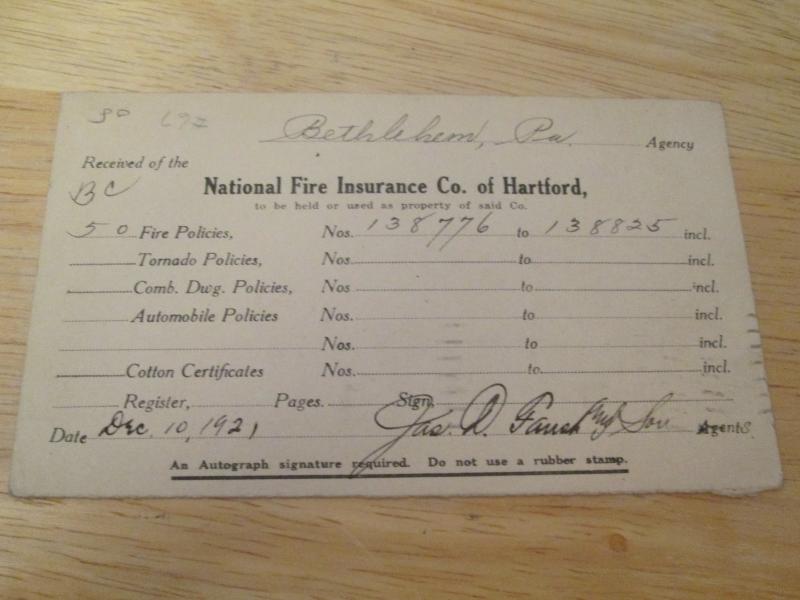 30 692
Bethlehem, Pa. Agency
Received of the
BC
National Fire Insurance Co. of Hartford,
to be held or used as property of said Co.
50 Fire Policies, Nos. 138776 to 138825 incl.
Tornado Policies, Nos. to incl.
Comb. Dwg. Policies, Nos to incl.
Automobile Policies Nos. to incl.
Nos. to incl.
Cotton Certificates Nos. to incl.
Register, Pages. Sign,
Date Dec. 10, 1921 Jas. D. Son Agents.
An Autograph signature required. Do not use a rubber stamp.